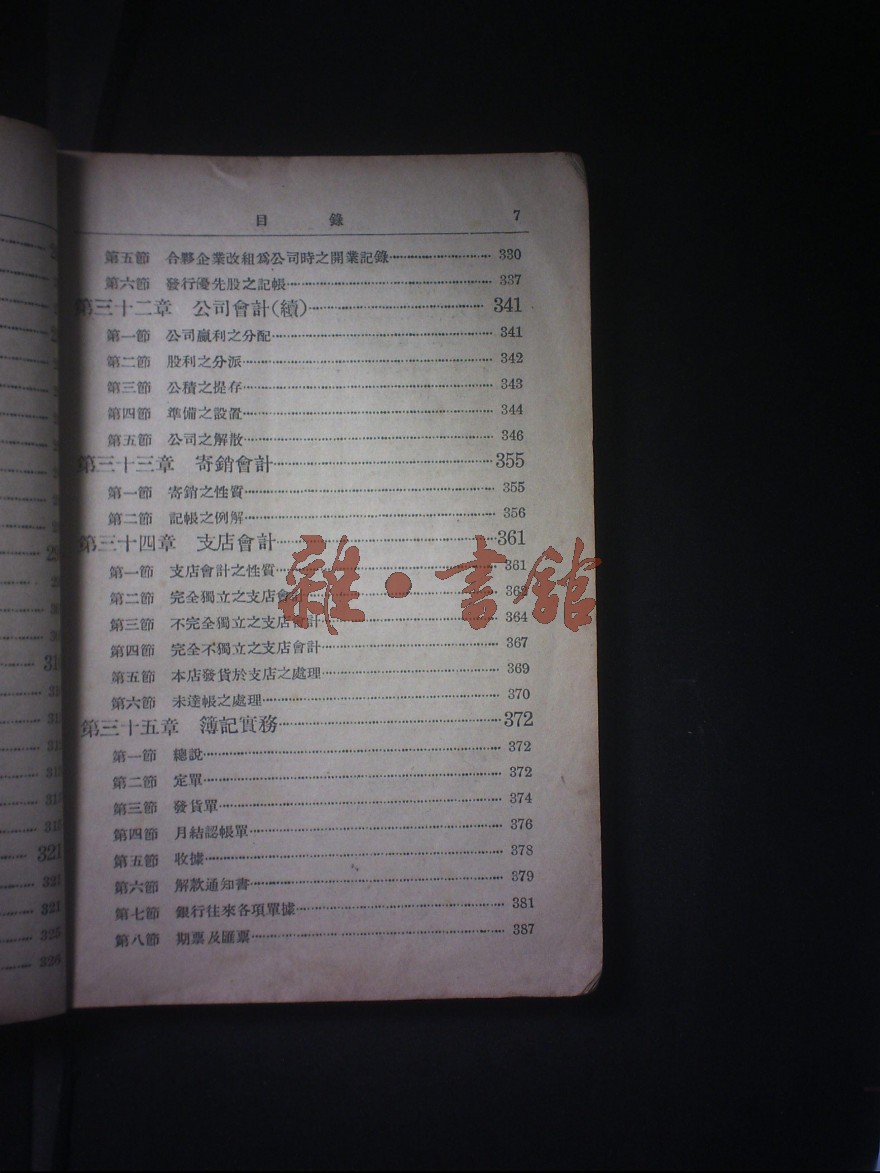 目錄 7
第五節 合夥企業改組爲公司時之開業記錄 330
第六節 發行優先股之記帳 337
第三十二章 公司會計(續) 341
第一節 公司贏利之分配 341
第二節 股利之分派 342
第三節 公積之提存 343
第四節 準備之設置 344
第五節 公司之解散 346
第三十三章 寄銷會計 355
第一節 寄銷之性質 355
第二節 記帳之例解 356
第三十四章 支店會計 361
第一節 支店會計之性質 361
第二節 完全獨立之支店會計 362
第三節 不完全獨立之支店會計 364
第四節 完全不獨立之支店會計 367
第五節 本店發貨於支店之處理 369
第六節 未達帳之處理 370
第三十五章 簿記實務 372
第一節 總說 372
第二節 定單 372
第三節 發貨單 374
第四節 月結認帳單 376
第五節 收據 378
第六節 解款通知書 379
第七節 銀行往來各項單據 381
第八節 期票及匯票 387
雜·書館
321
321
325
326